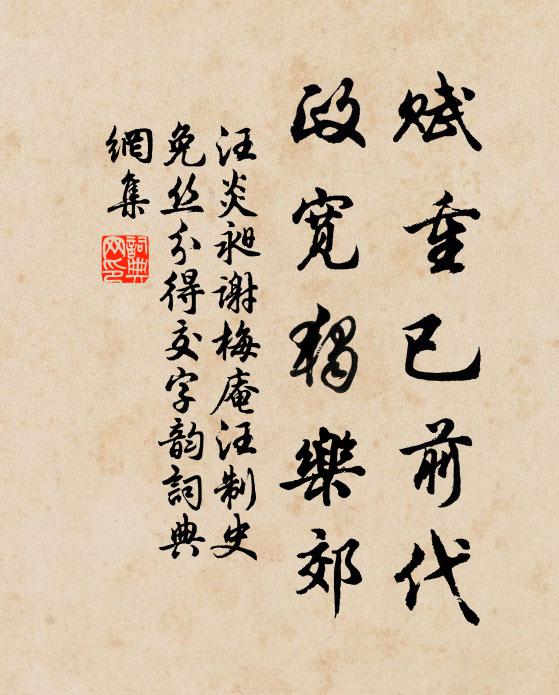 賦重已前代
政寬猶樂郊
汪炎昶謝梅庵汪制史
免丝分得交字韵詞典
網集
詞典
网印